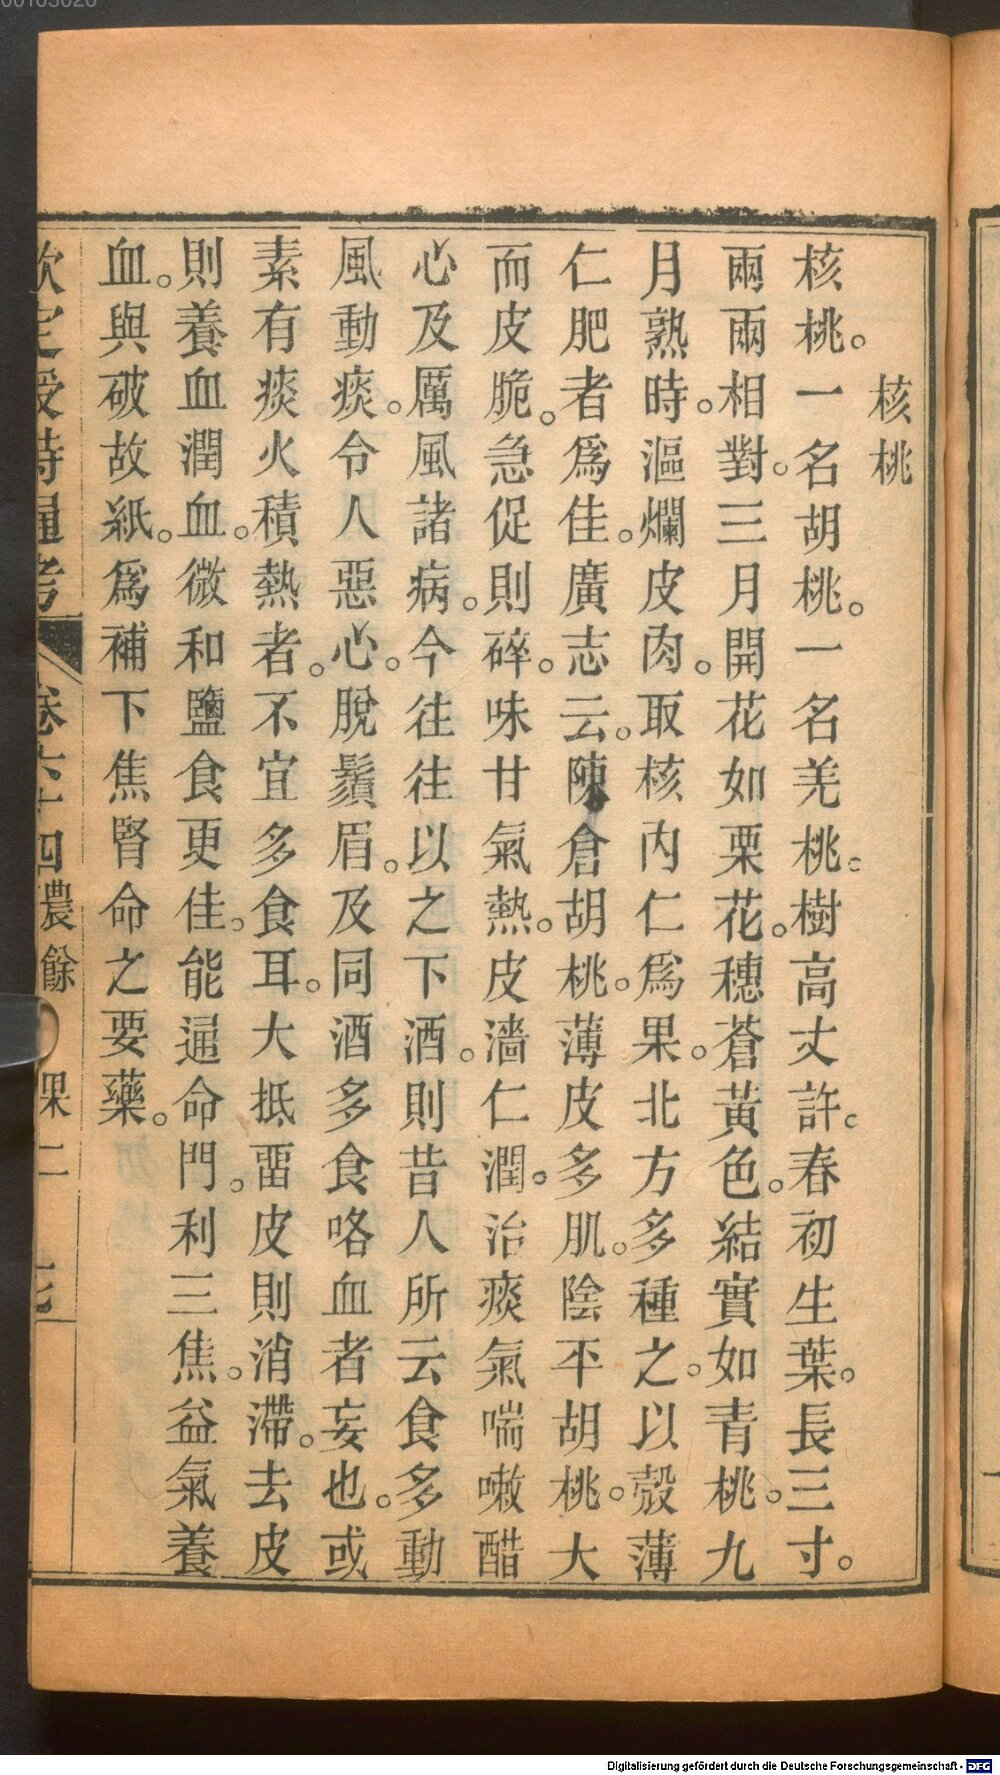 核桃
核桃。一名胡桃。一名羌桃。樹高丈許。春初生葉。長三寸。
兩兩相對。三月開花如栗花。穗蒼黃色。結實如青桃。九
月熟時。漚爛皮肉。取核內仁爲果。北方多種之。以殼薄
仁肥者爲佳。廣志云。陳倉胡桃。薄皮多肌。陰平胡桃。大
而皮脆。急促則碎。味甘氣熱。皮濇仁潤。治痰氣喘嗽醋
心及厲風諸病。今往往以之下酒。則昔人所云食多動
風動痰。令人惡心。脫鬚眉。及同酒多食咯血者妄也。或
素有痰火積熱者。不宜多食耳。大抵畱皮則消滯。去皮
則養血潤血。微和鹽食更佳。能通命門。利三焦。益氣養
血。與破故紙。爲補下焦腎命之要藥。
欽定授時通考 卷六十四農餘 果二 七
Digitalisierung gefördert durch die Deutsche Forschungsgemeinschaft - DFG